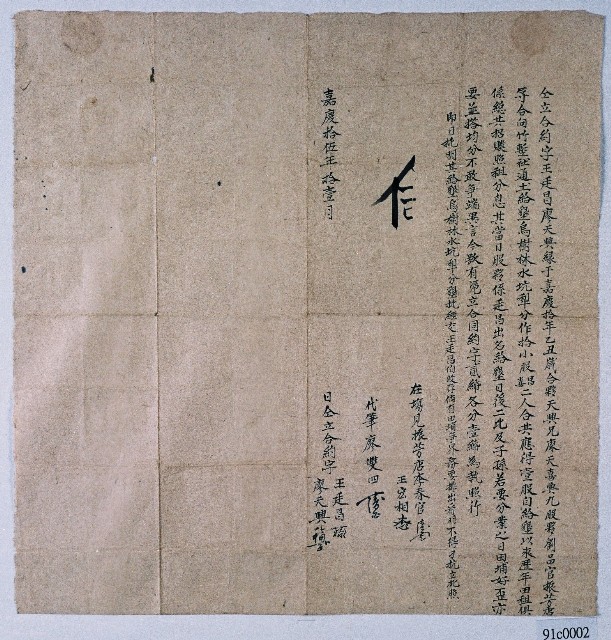 仝立合約字王廷昌廖天興緣于嘉慶拾年乙丑歲合夥天興兄廖天喜與九股夥劉品官振芳店
等合向竹塹社通土給墾烏樹林水坑犁分作拾小股昌喜二人合共應得壹股自給墾以來歷年田租俱
係總共招贌照租分息共當日股夥係廷昌出名給墾日後二比及子孫若要分業之日田埔好歪亦
要並搭均分不敢爭端異言今欲有憑立合同約字貳紙各分壹紙為執照行
即日批明其給墾烏樹林水坑犁分墾批經交王廷昌收存 要 出 不 立批照
合
在場見振芳店李春官
王宏相
代筆廖雙四
嘉慶拾伍年拾壹月 日仝立合約字
王廷昌
廖天興
91c0002